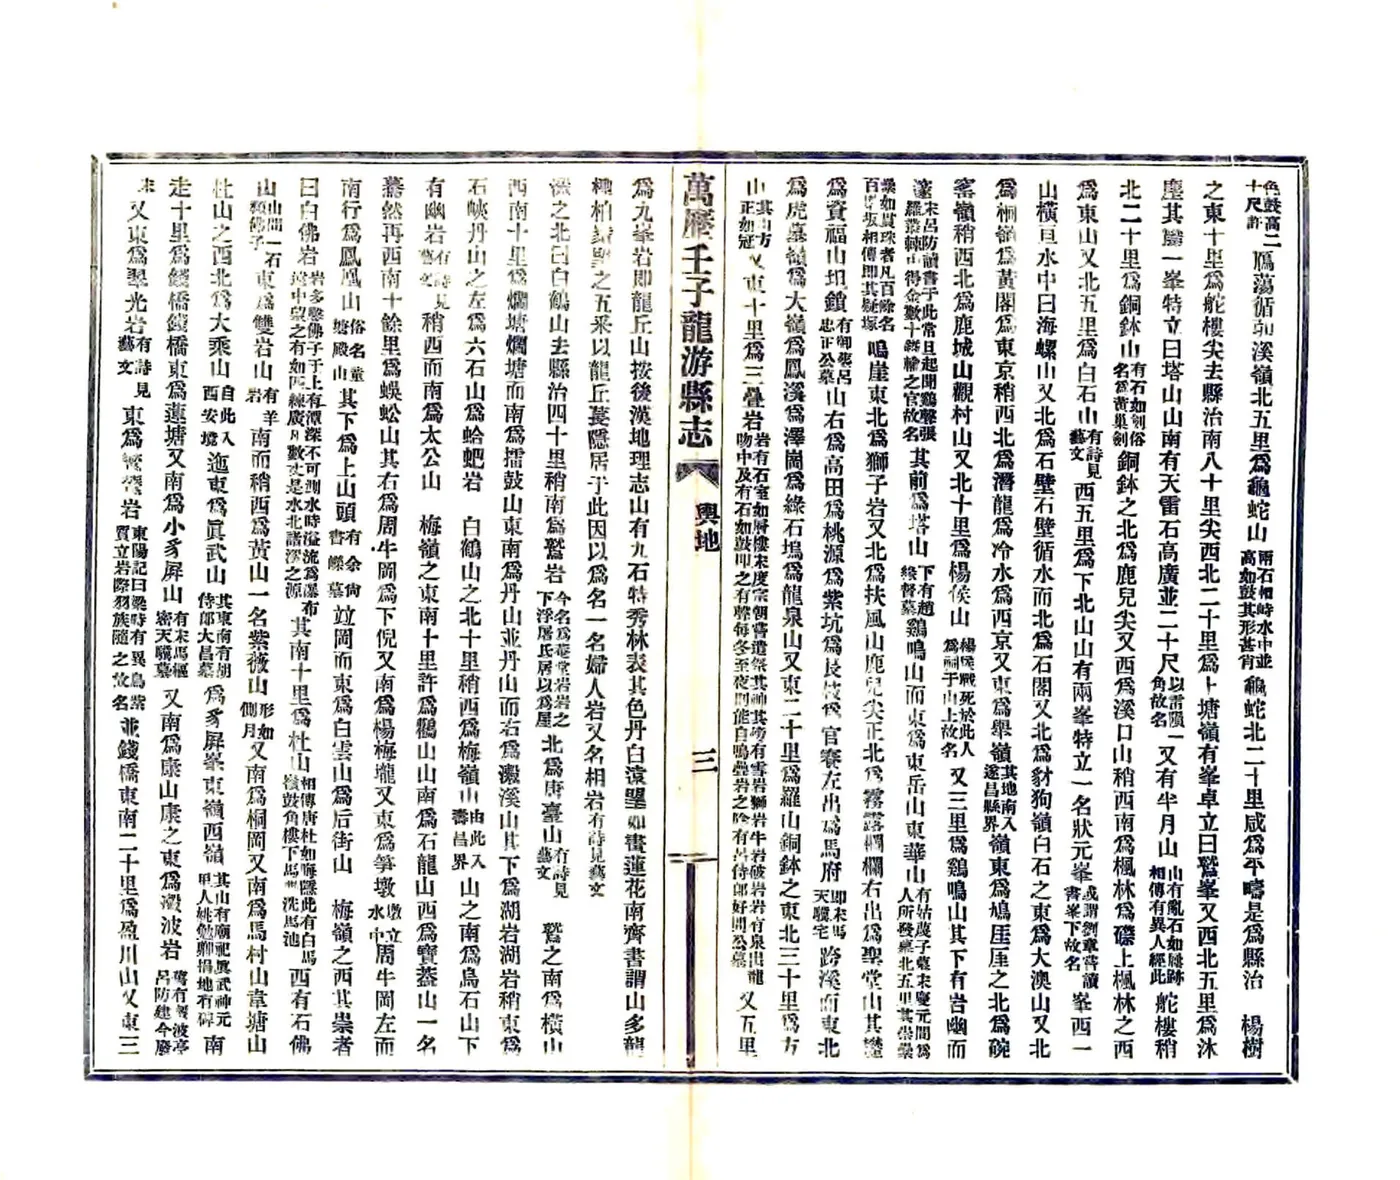 色鼓高二十尺許鴈蕩循北溪嶺北五里爲龜蛇山兩石相峙水中並高如鼓其形甚肖龜蛇北二十里咸爲平疇是爲縣治　楊樹
之東十里爲舵樓尖去縣治南八十里尖西北二十里爲上塘嶺有峯卓立曰鷲峯又西北五里爲沐
塵其勝一峯特立曰塔山山南有天雷石高廣並二十尺以雷隕角故名一又有半月山山有亂石如屐跡相傳有異人經此舵樓稍
北二十里爲銅鉢山有石如劍俗名爲黃巢劍銅鉢之北爲鹿兒尖又西爲溪口山稍西南爲楓林爲礤上楓林之西
爲東山又北五里爲白石山有詩見藝文西五里爲下北山山有兩峯特立一名狀元峯或謂劉章嘗讀書峯下故名峯西一
山橫亘水中曰海螺山又北爲石壁石壁循水而北爲石閣又北爲豺狗嶺白石之東爲大澳山又北
爲桐嶺爲黃閣爲東京稍西北爲潛龍爲冷水爲西京又東爲舉嶺其地南入遂昌縣界嶺東爲鳩厓厓之北爲碗
窰嶺稍西北爲鹿城山觀村山又北十里爲楊侯山楊侯戰死於此人爲祠于山上故名又三里爲鷄鳴山其下有岩幽而
邃宋呂防讀書于此常旦起聞鷄聲張羅叢棘中得金數十鎰輸之官故名其前爲塔山下有趙總督墓鷄鳴山而東爲東岳山東華山有姑蔑子墓宋慶元間爲人所發墓北五里其崇纍
纍如貫珠者凡百餘名百塚坂相傳卽其疑塚鳴崖東北爲獅子岩又北爲扶風山鹿兒尖正北爲霧露欄欄右出爲聖堂山其㘰
爲資福山坦鎮有御葬呂忠正公墓山右爲高田爲桃源爲紫坑爲長枝爲官寮左出爲馬府卽宋馬天驥宅跨溪而東北
爲虎墓嶺爲大嶺爲鳳溪爲澤崗爲綠石塢爲龍泉山又東二十里爲羅山銅鉢之東北三十里爲方
山其山方正如冠又東十里爲三疊岩岩有石室如層樓宋度宗朝嘗遣祭其神其旁有雪岩獅岩牛岩破岩岩有泉出龍吻中及有石如鼓叩之有聲每冬至夜則能自鳴疊岩之陰有呂侍郎好問公墓又五里
萬曆壬子龍游縣志　輿地　三
爲九峯岩卽龍丘山按後漢地理志山有九石特秀林表其色丹白遠望如畫蓮花南齊書謂山多龍
檉柏望之五釆以龍丘萇隱居于此因以爲名一名婦人岩又名相岩有詩見藝文
溪之北曰白鶴山去縣治四十里稍南爲鷲岩今名爲菴堂岩岩之下浮屠氏居以爲屋北爲唐臺山有詩見藝文　鷲之南爲橫山
西南十里爲爛塘爛塘而南爲擂鼓山東南爲丹山並丹山而右爲瀫溪山其下爲湖岩湖岩稍東爲
石峽丹山之左爲六石山爲蛤蚆岩　白鶴山之北十里稍西爲梅嶺山由此入壽昌界山之南爲烏石山下
有幽岩有詩見藝文稍西而南爲太公山　梅嶺之東南十里許爲鸛山山南爲石龍山西爲寶蓋山一名
驀然再西南十餘里爲蜈蚣山其右爲周牛岡爲下倪又南爲楊梅壠又東爲笋墩墩立水中周牛岡左而
南行爲鳳凰山俗名童塘殿山其下爲上山頭有余尙書爍墓竝岡而東爲白雲山爲后街山　梅嶺之西其崇者
曰白佛岩岩多鑿佛子于上有潭深不可測水時溢流爲瀑布從中望之有如匹練廣凡數丈是水北諸溪之源其南十里爲杜山相傳唐杜如晦隱此有白馬嶺鼓角樓下馬洲洗馬池西有石佛
山山間一石類佛子東爲雙岩山有羊岩南而稍西爲黃山一名紫薇山形如側月又南爲桐岡又南爲馬村山韋塘山
杜山之西北爲大乘山自此入西安境迤東爲眞武山其東南有胡侍郎大昌墓爲豸屏峯東嶺西嶺其山有廟祀眞武神元甲人姚勉卿捐地有碑南
走十里爲錢橋錢橋東爲蓮塘又南爲小豸屏山有宋馬樞密天驥墓又南爲康山康之東爲瀫波岩舊有瀫波亭呂防建今廢
來又東爲翠光岩有詩見藝文東爲鷲鷺岩東陽記曰梁時有異鳥紫質立岩際羽族隨之故名並錢橋東南二十里爲盈川山又東三